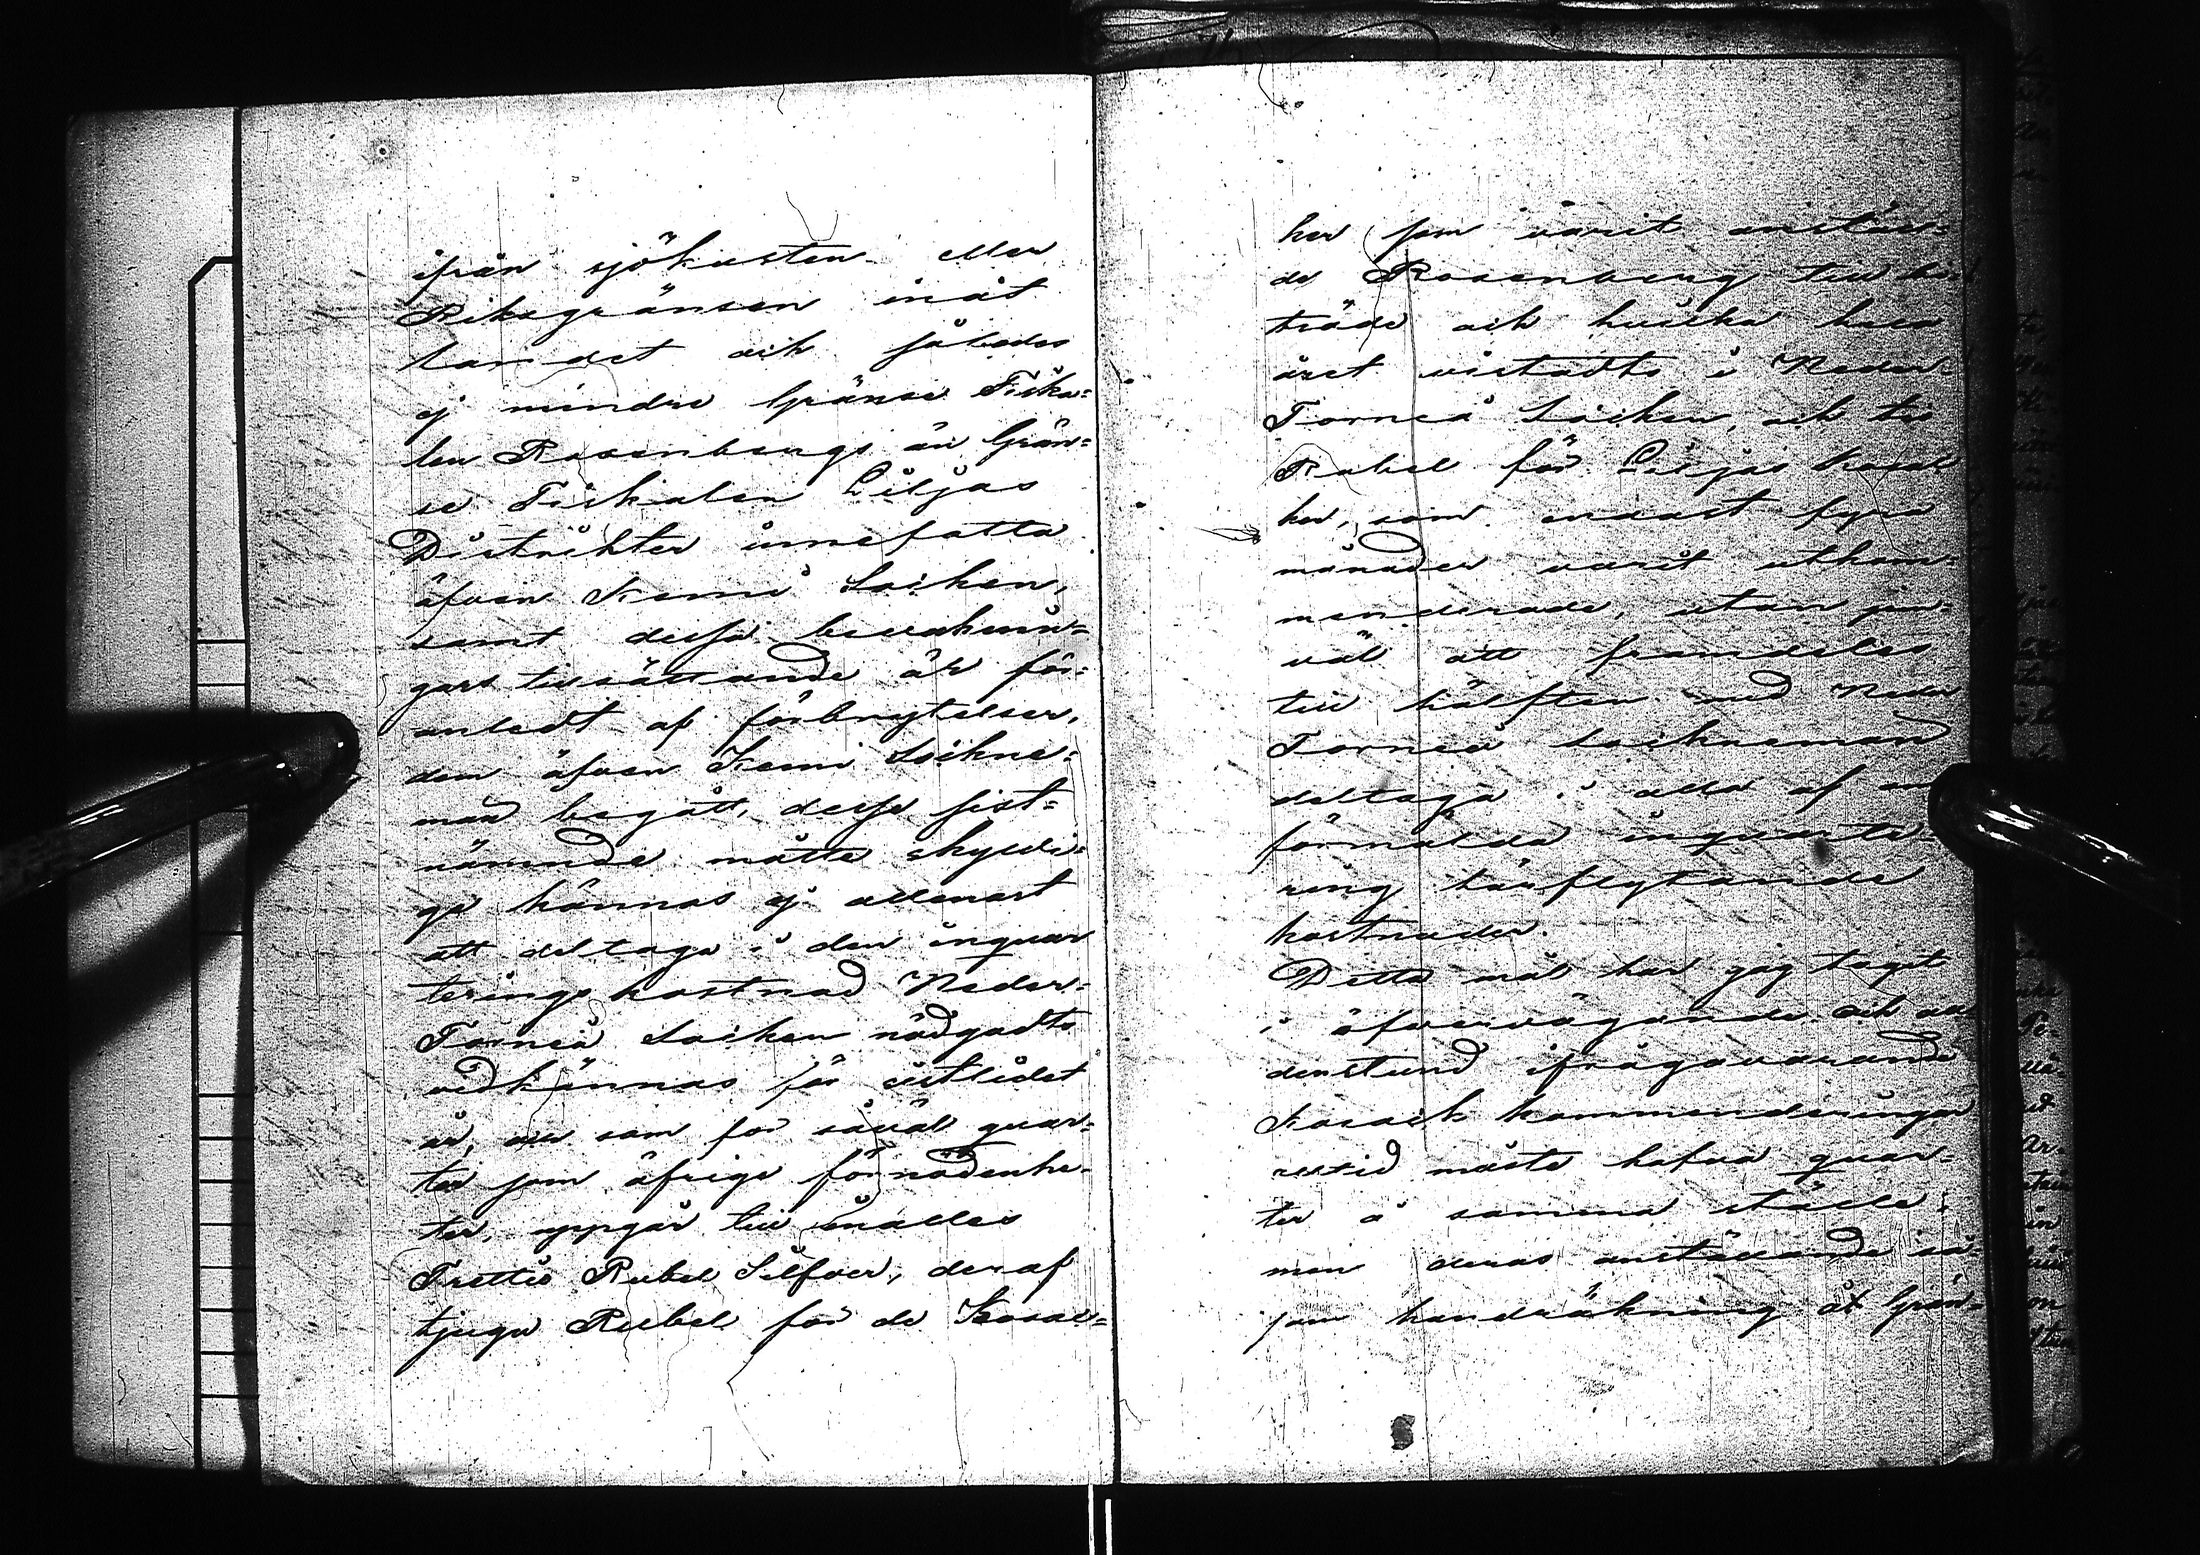 ifrån sjökusten eller
Riksgränsen inåt
landet och således
ej mindre Gränse Fiska=
len Rosenbergs än Grän=
se Fiskalen Liljas
Distrikter innefatta
äfven Kemi Socken,
samt dessa bevaknin=
gars tillsättande är för=
anledt af förbrytelser,
dem äfven Kemi Sockne=
män begått, desse sist=
nämnde måtte skyldi=
ge kännas ej allenast
att deltaga i den inquar
terings kostnad Neder=
Torneå Socken nödgadts
vidkännas för sistlidet
år, som för såväl quar=
ter som öfrige förnödenhe=
ter, uppgår till
Trettio Rubel Silfver, deraf
tjugu Rubel för de Kosac=
ker som varit anstäl=
de Rosenberg till bi
träde och hvilka hela
året vistadts i Neder=
Torneå Socken, och tio
Rubel för Liljas kosac
ker, som endast fyra
månader varit utkom=
menderade, utan jem=
väl att framdeles
till hälften med Neder
Torneå Socknemän
deltaga i alla af
förmälda inquarte=
ring härflytande
kostnader.
Detta mål har jag tagit
i öfvervägande och
denstund ifrågavarande
Kosack kommenderingar
alltid måste hafva quar=
ter å samma ställe;
men deras anställande så=
som handräkning åt Grän=